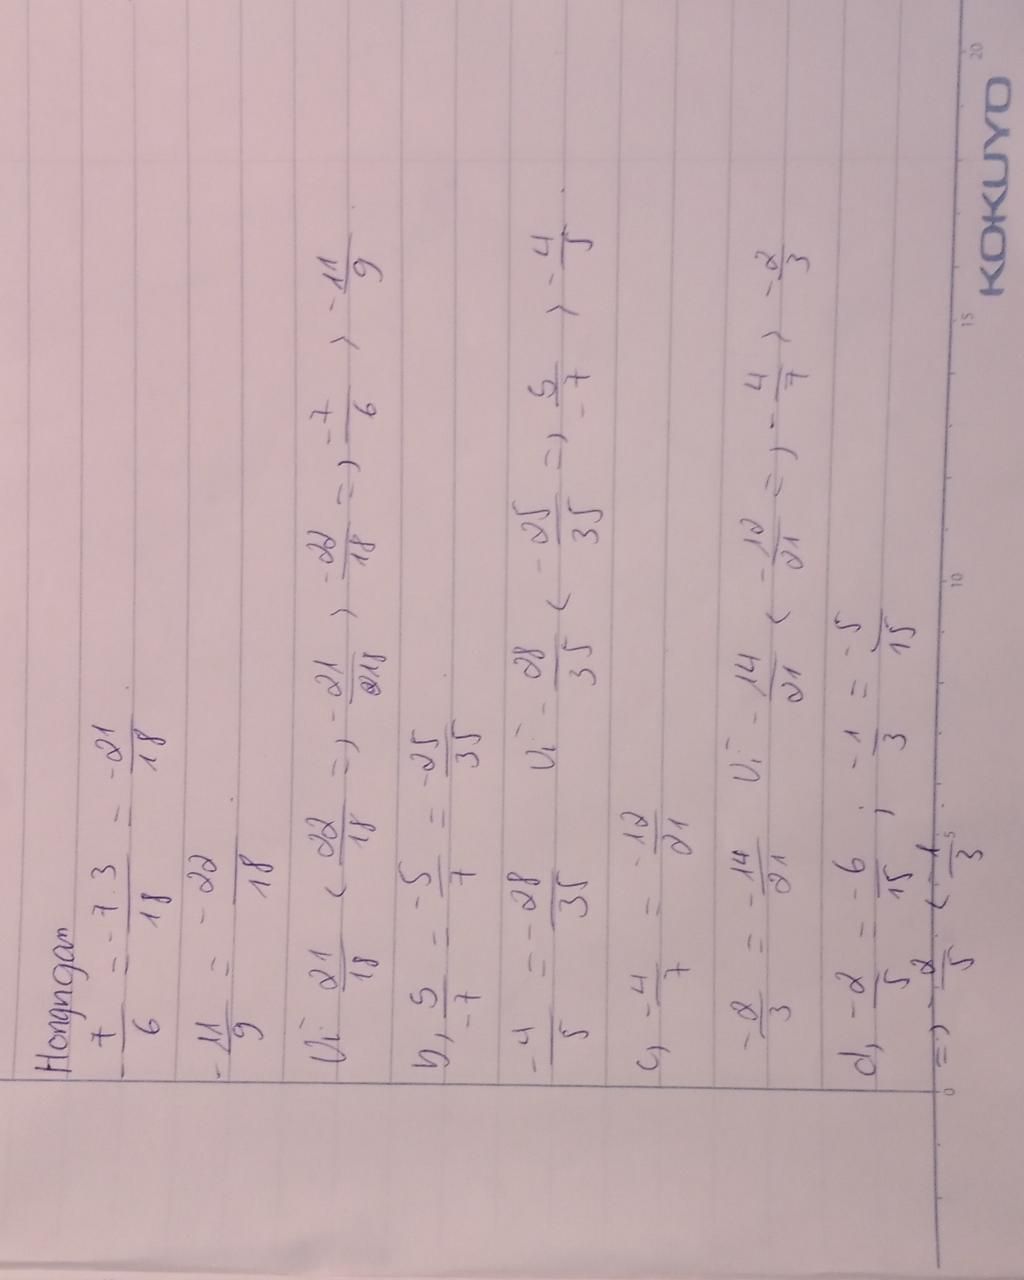 Hongngan
-7/6 = -7.3/18 = -21/18
-11/9 = -22/18
Vì 21/18 < 22/18 => -21/18 > -22/18 => -7/6 > -11/9
b, 5/-7 = -5/7 = -25/35
-4/5 = -28/35 Vì -28/35 < -25/35 => 5/-7 > -4/5
c, -4/7 = -12/21
-2/3 = -14/21 Vì -14/21 < -12/21 => -4/7 > -2/3
d, -2/5 = -6/15 ; -1/3 = -5/15
=> -2/5 < -1/3
0 5 10 15 20
KOKUYO